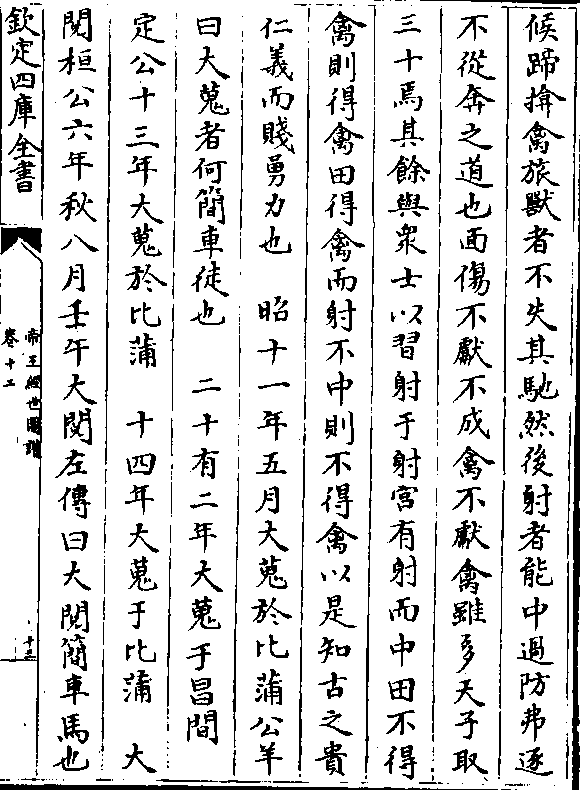 候蹄揜禽旅獸者不失其馳然後射者能中過防弗逐
不從奔之道也面傷不獻不成禽不獻禽雖多天子取
三十焉其餘與衆士以習射于射宮有射而中田不得
禽則得禽田得禽而射不中則不得禽以是知古之貴
仁義而賤勇力也　昭十一年五月大蒐於比蒲公羊
曰大蒐者何簡車徒也　二十有二年大蒐于昌間
定公十三年大蒐於比蒲　十四年大蒐于比蒲　大
閱桓公六年秋八月壬午大閱左傳曰大閱簡車馬也
欽定四庫全書
帝王經世圖譜
卷十二